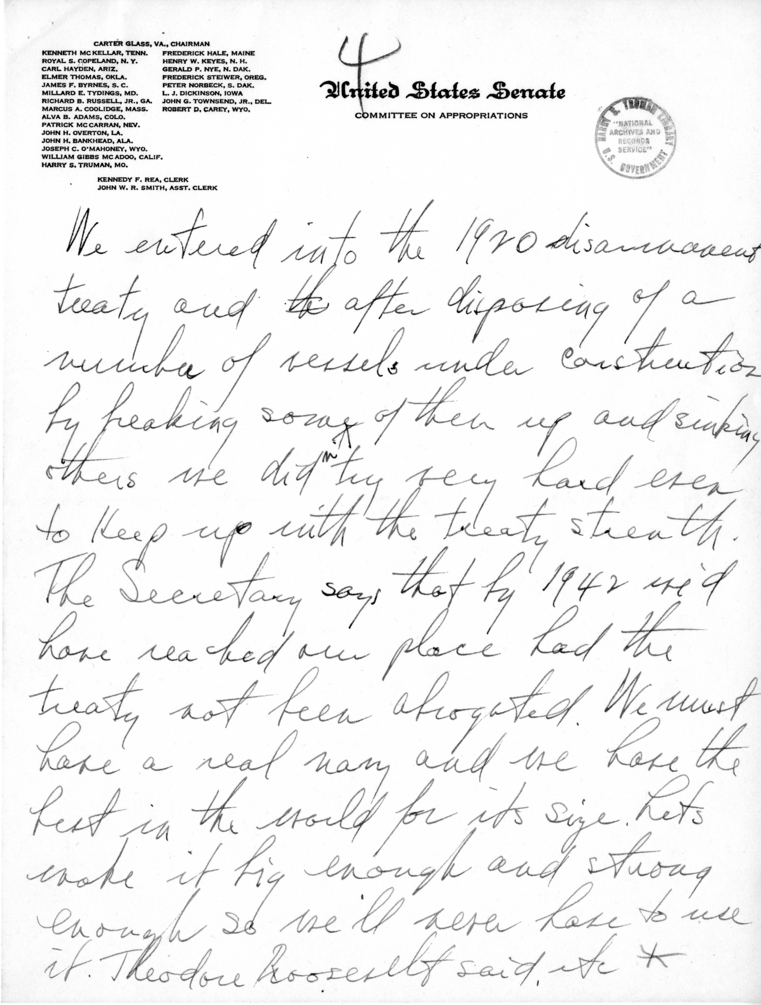 4
CARTER GLASS, VA., CHAIRMAN
KENNETH MCKELLAR, TENN.
ROYAL S. COPELAND, N. Y.
CARL HAYDEN, ARIZ.
ELMER THOMAS, OKLA.
JAMES F. BYRNES, S. C.
MILLARD E. TYDINGS, MD.
RICHARD B. RUSSELL, JR., GA.
MARCUS A. COOLIDGE, MASS.
ALVA B. ADAMS, COLO.
PATRICK MCCARRAN, NEV.
JOHN H. OVERTON, LA.
JOHN H. BANKHEAD, ALA.
JOSEPH C. O'MAHONEY, WYO.
WILLIAM GIBBS MCADOO, CALIF.
HARRY S. TRUMAN, MO.
FREDERICK HALE, MAINE
HENRY W. KEYES, N. H.
GERALD P. NYE, N. DAK.
FREDERICK STEIWER, OREG.
PETER NORBECK, S. DAK.
L. J. DICKINSON, IOWA
JOHN G. TOWNSEND, JR., DEL.
ROBERT D. CAREY, WYO.
KENNEDY F. REA, CLERK
JOHN W. R. SMITH, ASST. CLERK
United States Senate
COMMITTEE ON APPROPRIATIONS
HARRY S. TRUMAN LIBRARY
"NATIONAL
ARCHIVES AND
RECORDS
SERVICE"
U.S. GOVERNMENT
We entered into the 1920 disarmament
treaty and th after disposing of a
number of vessels under construction
by breaking some of them up and sinking
others we didn't try very hard even
to keep up with the treaty strenth.
The Secretary says that by 1942 we'd
have reached our place had the
treaty not been abrogated. We must
have a real navy and we have the
best in the world for its size. Lets
make it big enough and strong
enough so we'll never have to use
it. Theodore Roosevelt said, etc *